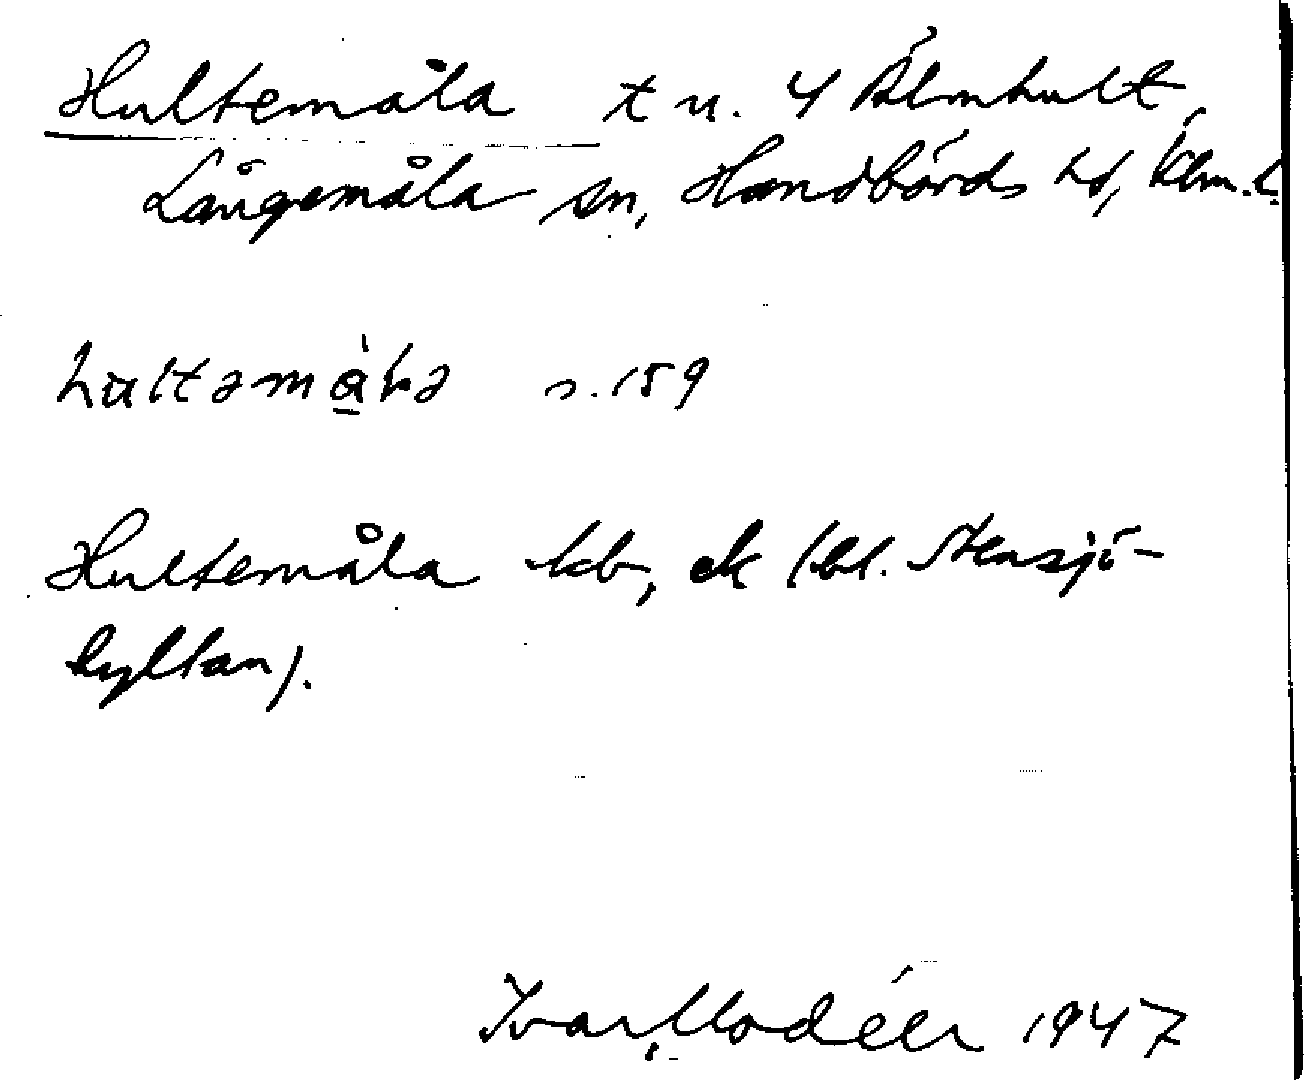 Hultemåla t u. 4 Älmhult,
Långemåla sn, Handbörds hd, Klm. l.
hultəmå̀ɫa s. 159
Hultemåla kb, ek (bl. Stensjö-
hyltan).
Ivar Modéer 1947